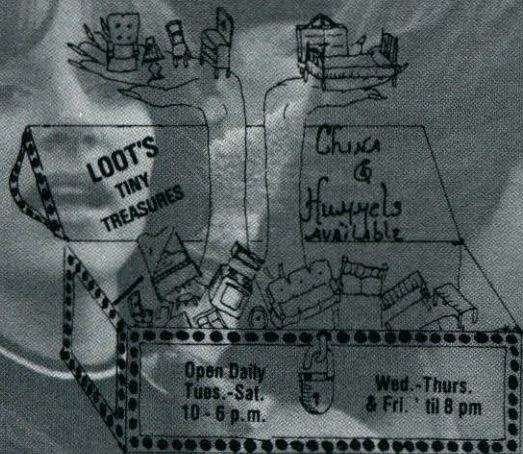 LOOT'S
TINY
TREASURES
China
&
Hummels
Available
Open Daily
Tues.-Sat.
10 - 6 p.m.
Wed.-Thurs.
& Fri. ' til 8 pm